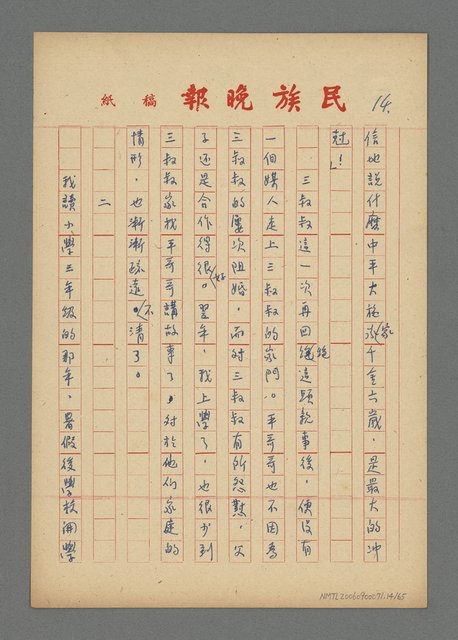 14.
民族晚報 稿紙
信她說什麼中平大施家千金六歲，是最大的冲
尅！」
三叔叔這一次再回絕這頭親事後，便没有
一個媒人走上三叔叔的家門。平哥哥也不因為
三叔叔的屢次阻婚，而对三叔叔有所怨懟，父
子还是合作得很好。翌年，我上學了，也很少到
三叔叔家找平哥哥講故事了，对於他们家庭的
情形，也漸漸疏遠不清了。
二
我讀小學三年級的那年，暑假後學校開學
NMTL20060900071.14/65